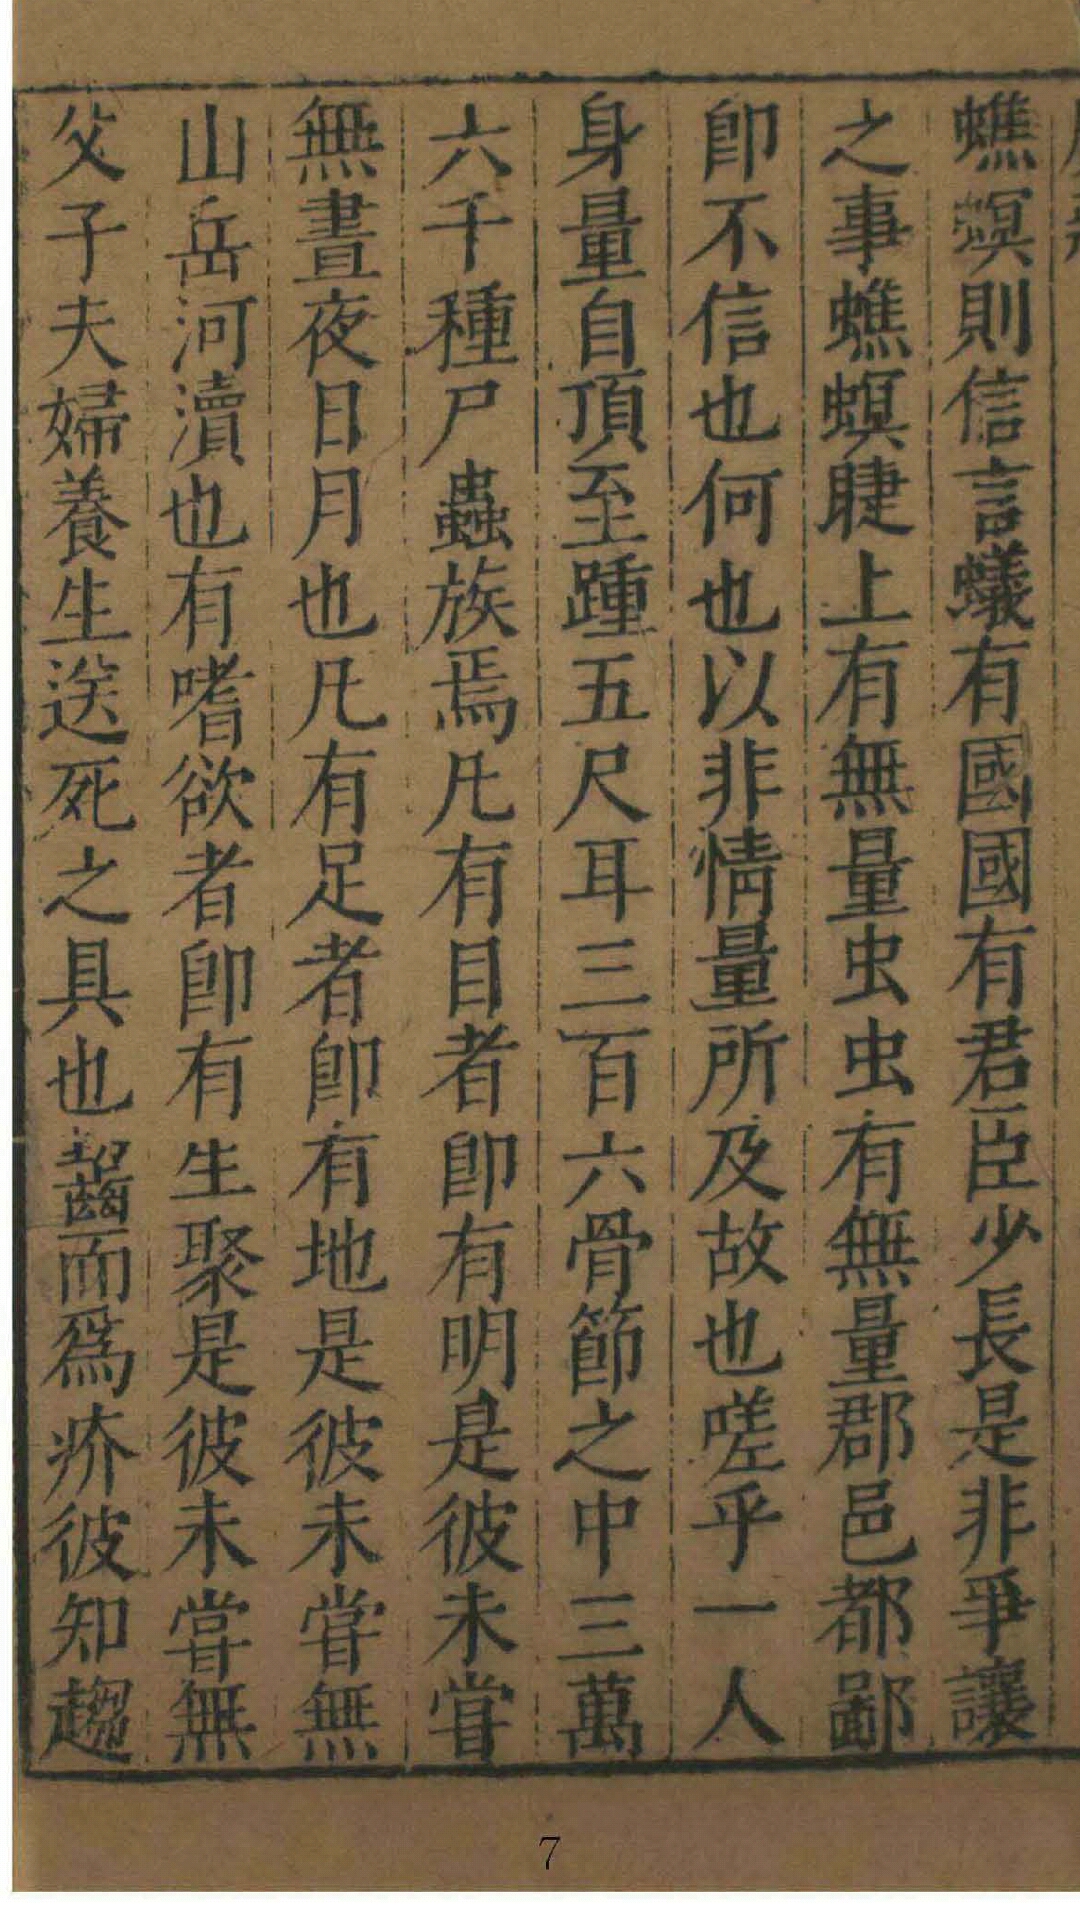 蟭螟則信言蟻有國國有君臣少長是非爭讓
之事蟭螟睫上有無量虫虫有無量郡邑都鄙
卽不信也何也以非情量所及故也嗟乎一人
身量自頂至踵五尺耳三百六骨節之中三萬
六千種尸蟲族焉凡有目者卽有明是彼未甞
無晝夜日月也凡有足者卽有地是彼未甞無
山岳河瀆也有嗜欲者卽有生聚是彼未甞無
父子夫婦養生送死之具也齧而爲疥彼知趨
7